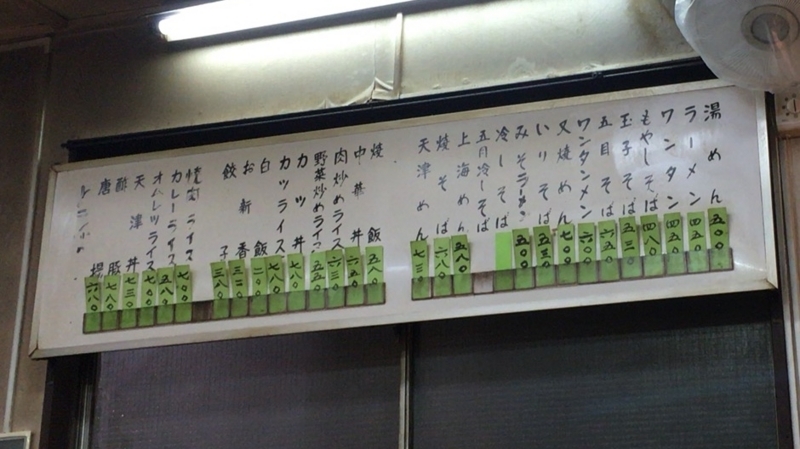 湯めん 五〇〇
ラーメン 四五〇
ワンタン 四五〇
もやしそば 四八〇
玉子そば 五三〇
五目そば 六五〇
ワンタンメン
叉焼めん 七〇〇
いりそば 五三〇
みそラーメン
冷しそば
五目冷しそば
上海めん 五八〇
焼そば 六八〇
天津めん 七三〇
焼飯 五八〇
中丼 六五〇
肉炒めライス 六三〇
野菜炒めライス 五五〇
カツ丼 七八〇
カツライス 七八〇
白飯 二〇〇
お新香
餃子 三八〇
焼肉ライス 七〇〇
カレーライス 五八〇
オムレツライス 七〇〇
天津丼 七三〇
酢豚 七八〇
唐揚 六八〇